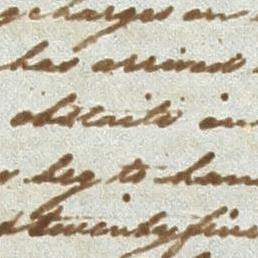 charges on
has arrived
obstacle in
beg to han
twenty five